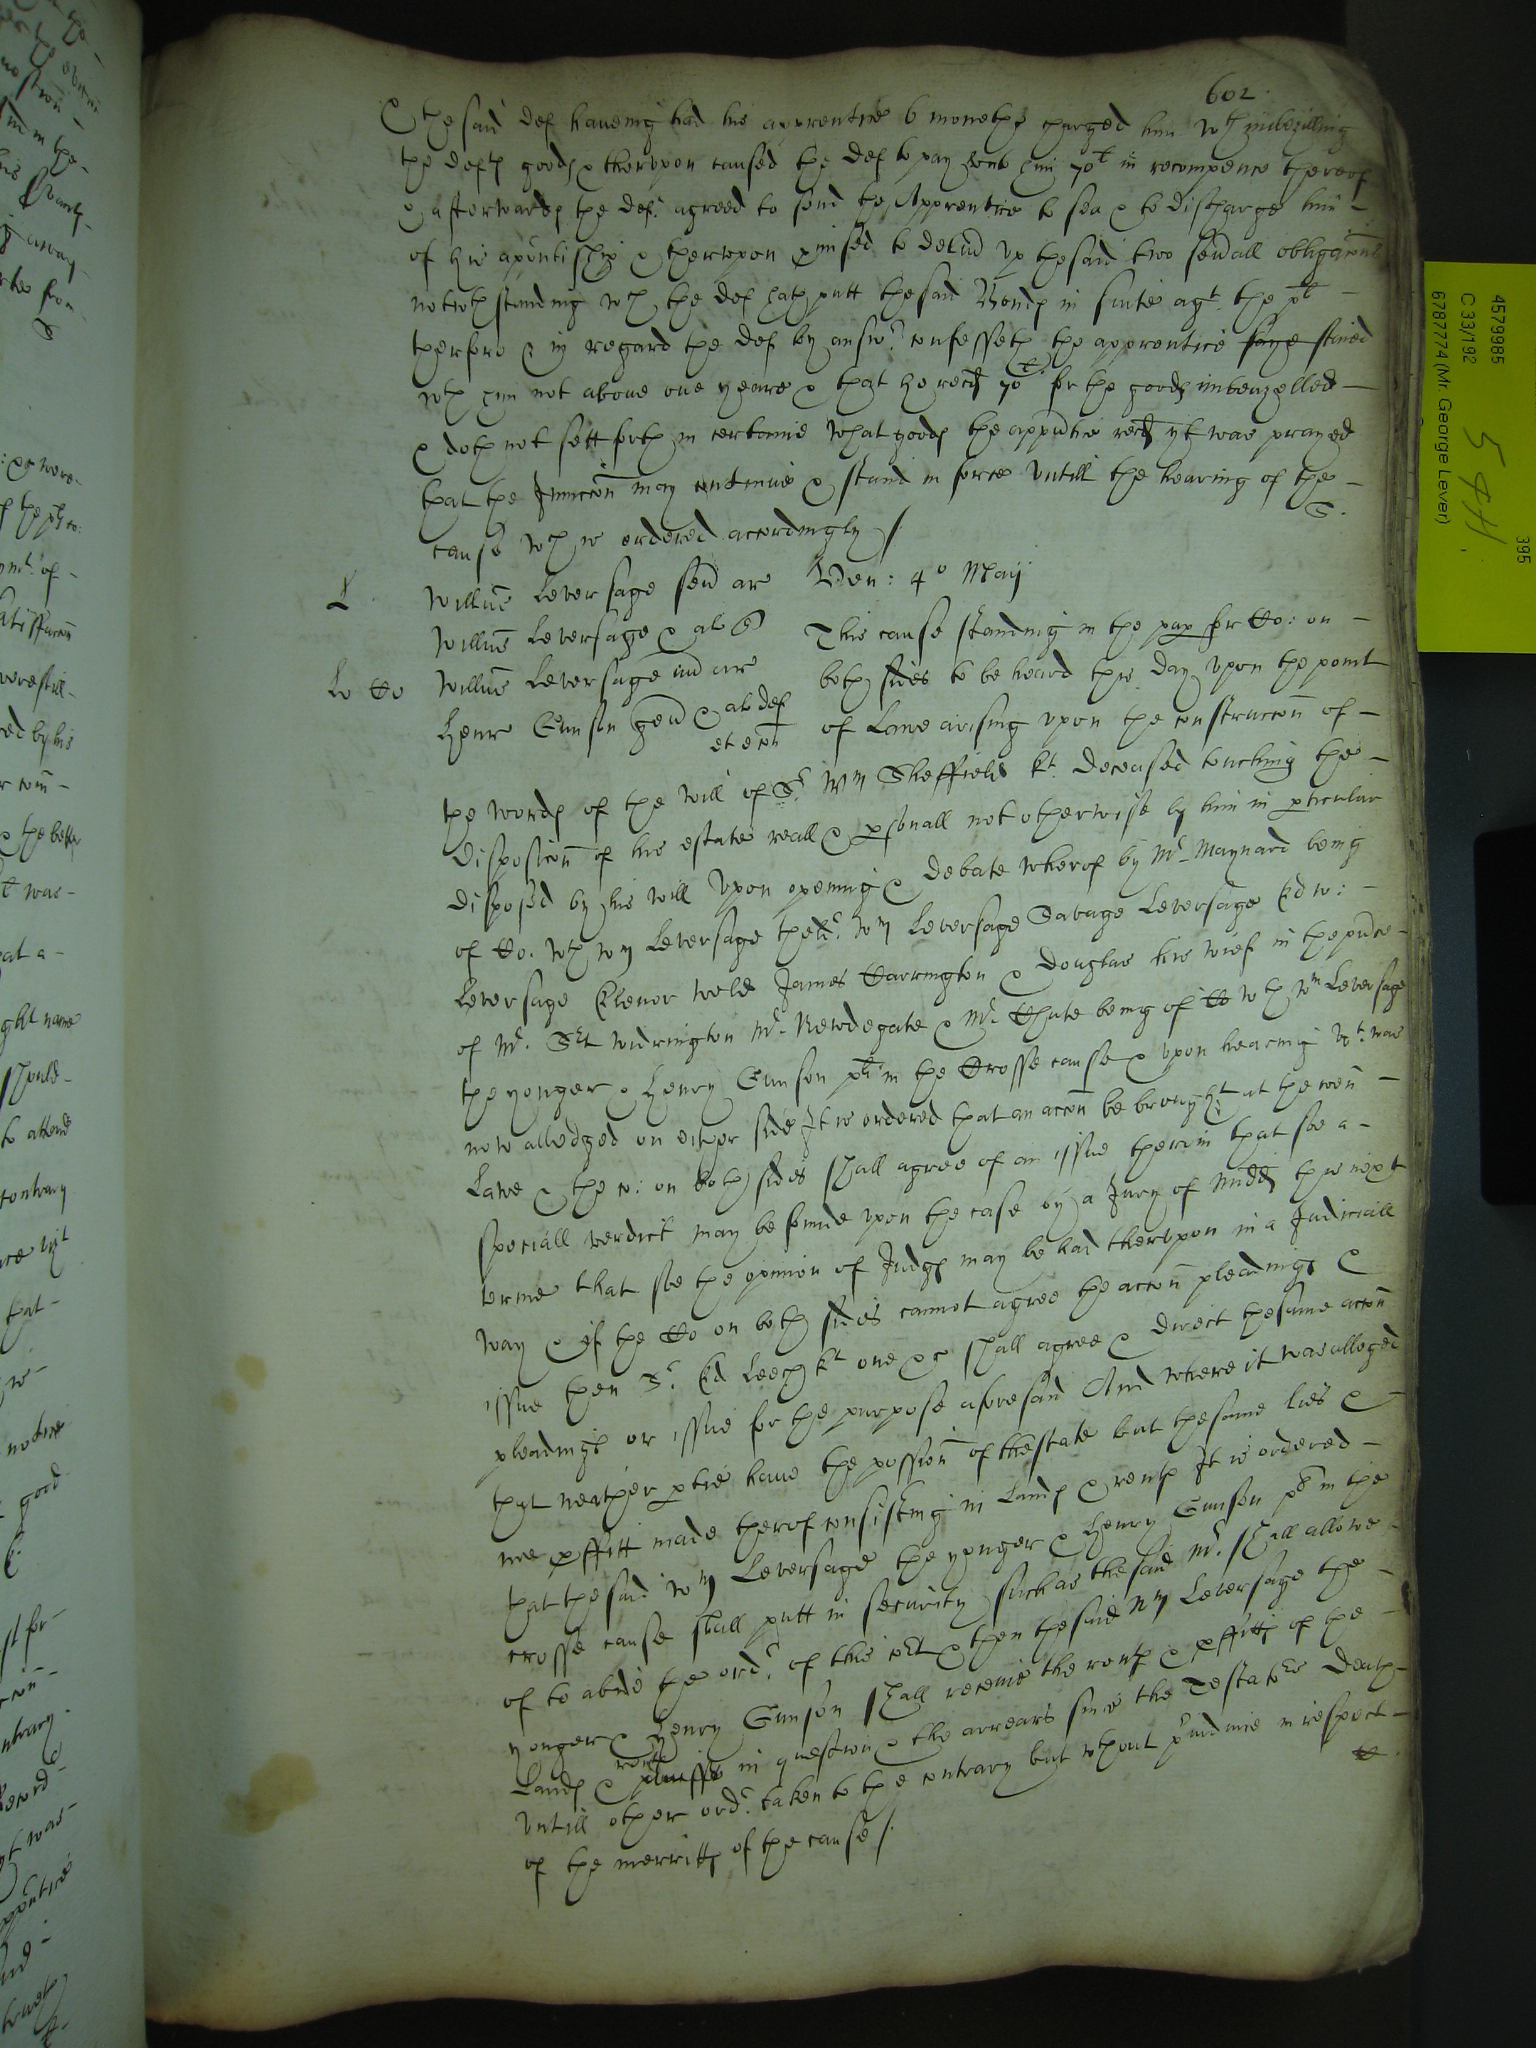 602.
& the said def haveing had his apprentice 6 moneths charged him wth imbezilling
the defts goods & therupon caused the def to pay unto him 70l in recompence thereof
& afterwards the deft agreed to send the Apprentice to sea & to discharge him –
of his apprentiship & therupon to deliver up the said two severall obligacons
notwthstanding wch the def hath putt the said Bonds in suite agt the plt –
therfore & in regard the def by answr confesseth the apprentice served
wth him not above one yeare & that he recd 70l for the goods imbeazelled –
& doth not sett forth in certaine what goods the apprentice recd yt was prayed
that the Iniuccon may continue & stand in force untill the hearing of the –
cause wch is ordered accordingly /
L
Willus Leversage sen ar Ven: 4o Maij
Willus Leversage & al This cause standing in the pap for Co: on –
Willus Leversage iun ar both sides to be heard this day upon the point
Henr Gunson gen & al def of Lawe arising upon the construccon of –
et e con
the words of the will of Sr Wm Sheffield kt. deceased touching the –
disposicon of his estate reall & psonall not otherwise by him in pticular
disposed by his will Upon opening & debate wherof by Mr Maynard being
of Co. wth Wm Leversage the eldr Wm Leversage Savage Leversage Edw: –
Leversage Elenor Weld James Harrington & Douglas his wief in the psence
of Mr. Sert Widrington Mr. Newdegate & Mr. Chute being of Co wth Wm Leversage
the yonger & Henry Gunson plts in the Crosse cause & upon hearing wt. was
now alledged on either side It is ordered that an accon be brought at the comon –
Lawe & the co: on both sides shall agree of an issue therein that soe a –
speciall verdict may be found upon the case by a Jury of Midd this next
terme that soe the opinion of Judges may be had therupon in a Judiciall
way & if the Co on both sides cannot agree the accon pleadings &
issue then Sr. Ed Leech kt one &c shall agree & direct the same accon
pleadings or issue for the purpose aforesaid And where it was alleged
that neither ptie have the possion of thestate but the same lies &
noe pffitt made therof consisting in Lands & rents It is ordered –
that the said Wm Leversage the yonger & Henry Gunson plts in the
crosse cause shall putt in security such as the said Mr. shall allowe –
of to abide the ordr. of this cort & then the said Wm Leversage the –
yonger & Henry Gunson shall receive the rents & pffitts of the –
Lands & rents in question & the arreares since the Testators death –
untill other ordr. taken to the contrary but wthout preiudice in respect –
of the merritts of the cause /
4579985
C 33/192
6787774 (Mr. George Lever)
395